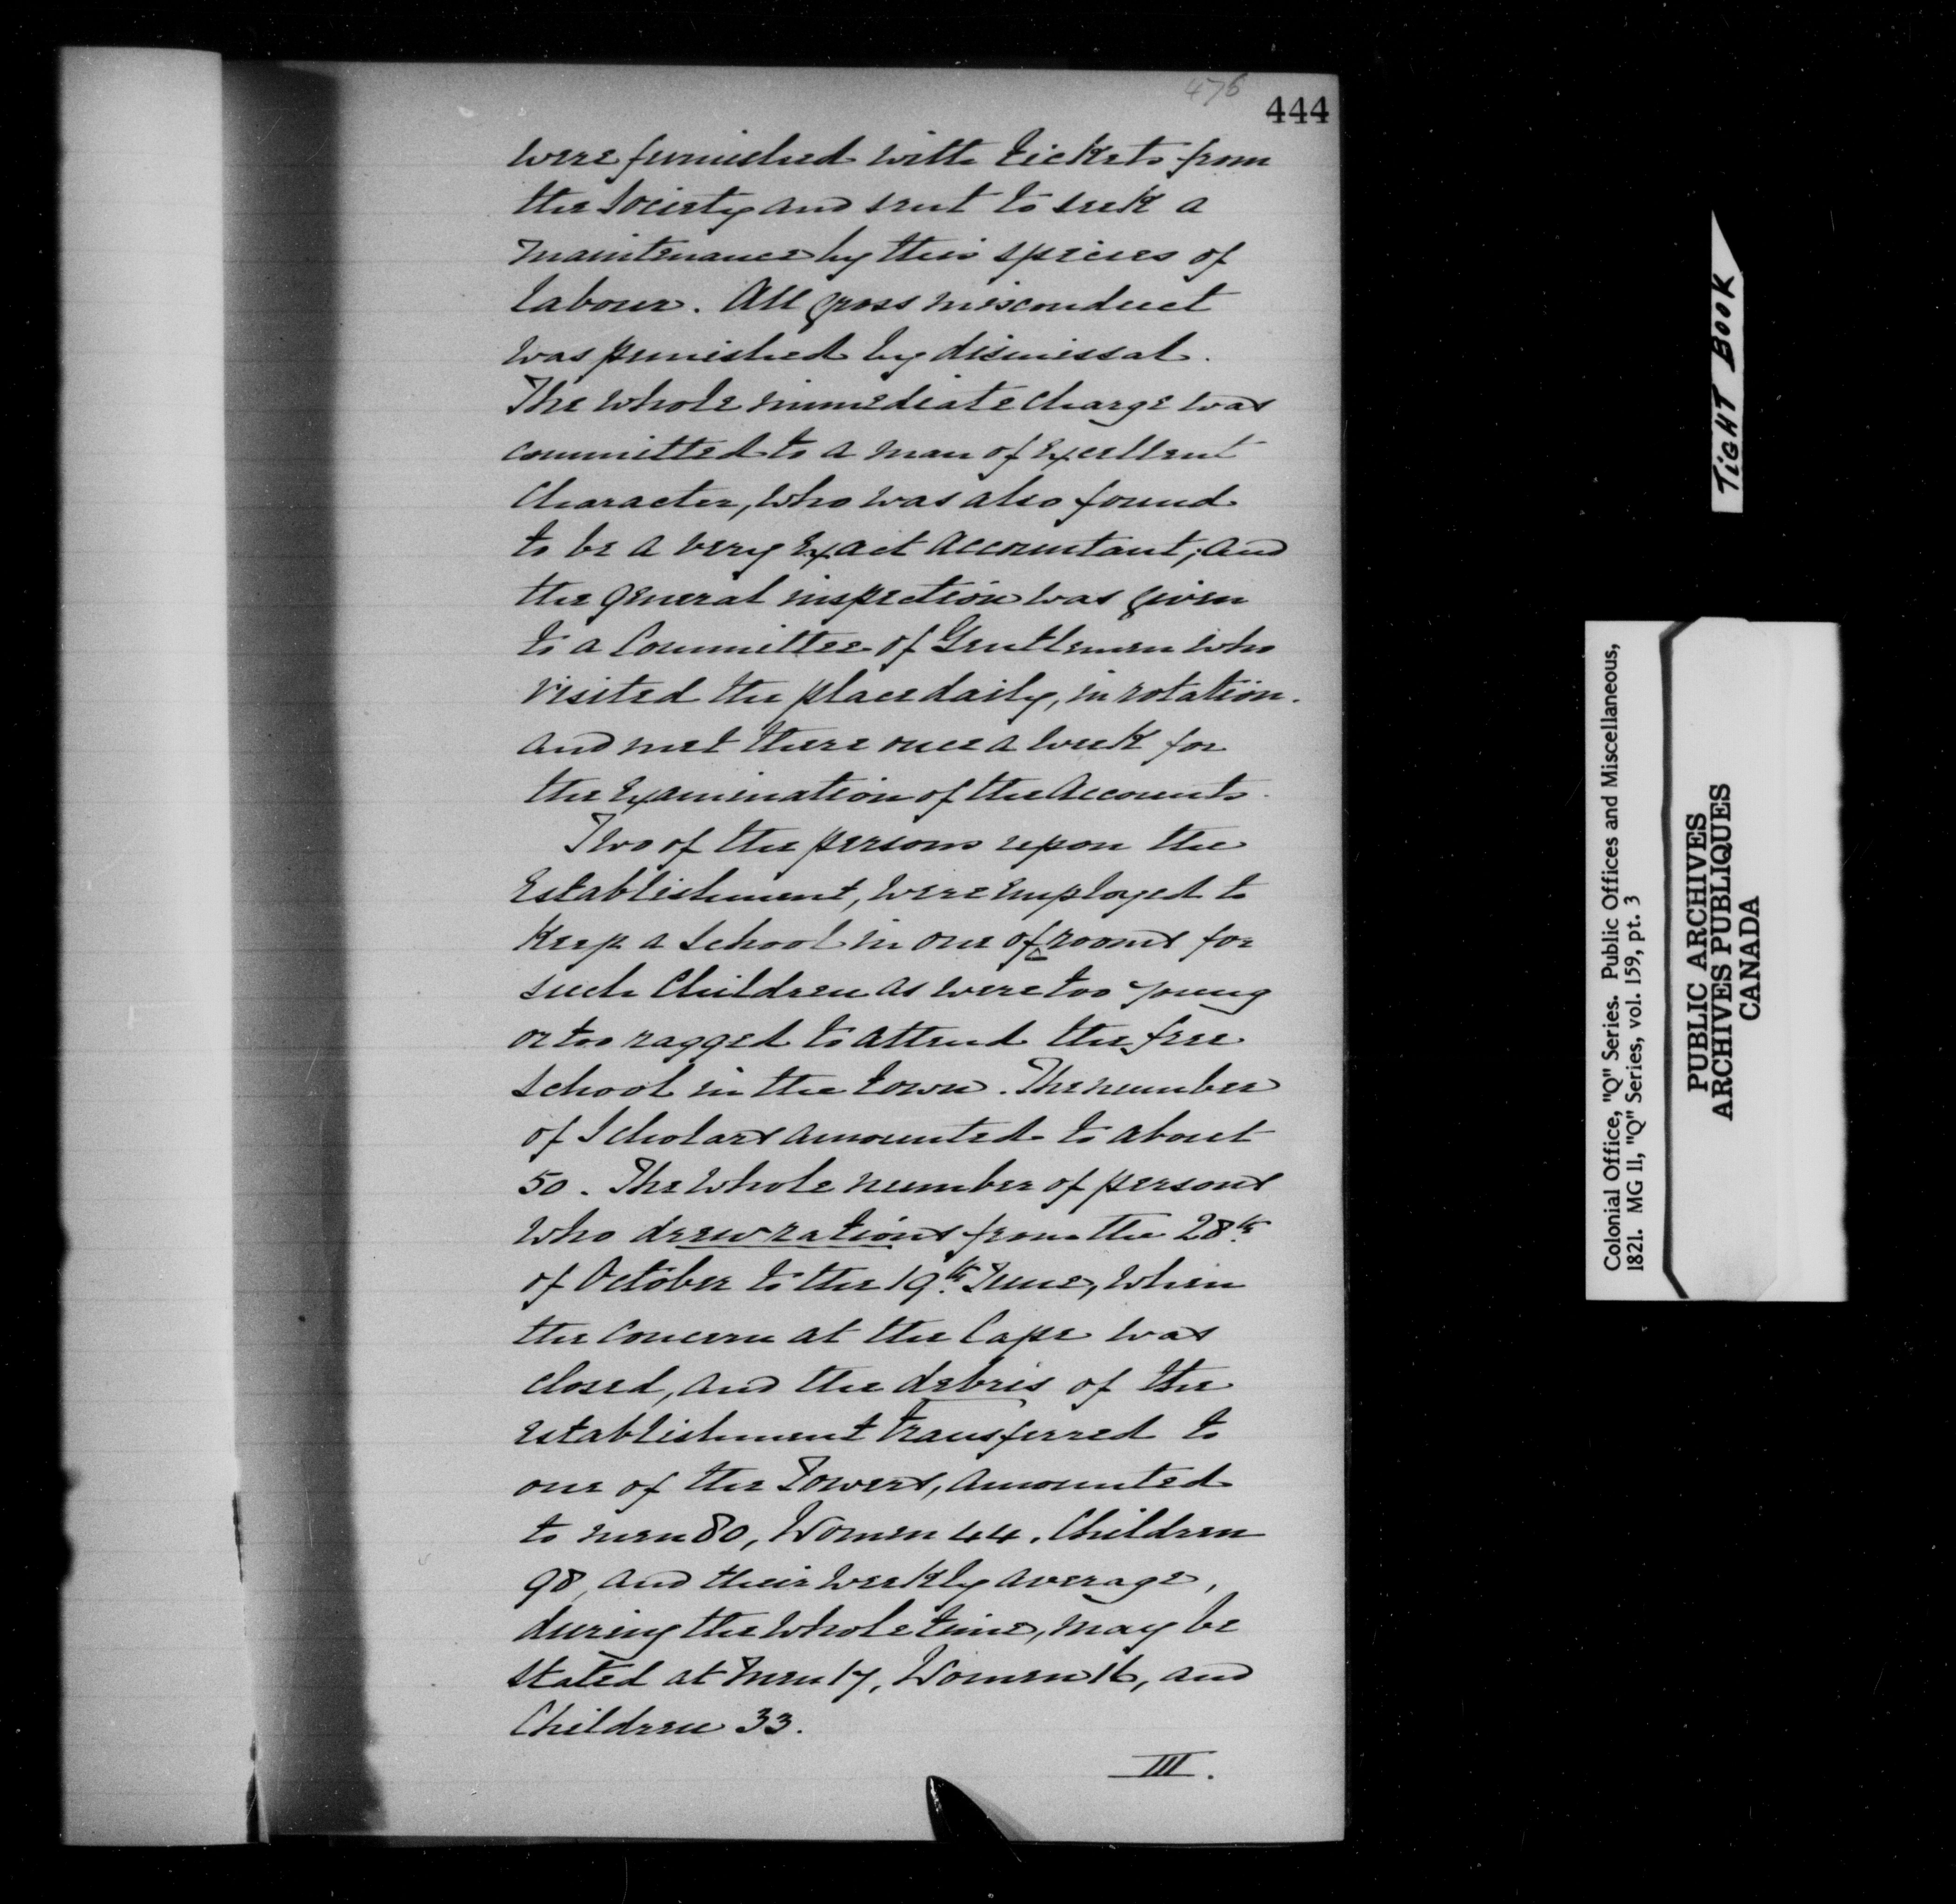 476
444
were furnished with tickets from
the Society and sent to seek a
maintenance by this species of
labour. All gross misconduct
was punished by dismissal.
The whole immediate charge was
committed to a man of excellent
Character, who was also found
to be a very exact accountant; and
the general inspection was given
to a Committee of Gentlemen who
visited the place daily, in rotation.
and met there once a week for
the examination of the Accounts.
Two of the persons upon the
Establishment, were employed to
Keep a School in one of rooms for
such Children as were too young
or too ragged to attend the free
School in the town. The number
of Scholars amounted to about
50. The whole number of persons
who drew rations from the 28th
of October to the 19th June, when
the Concern at the Cape was
closed, and the debris of the
establishment transferred to
one of the Towers, amounted
to men 80, Women 44. Children
98, and their weekly average,
during the whole time, may be
stated at men 17, Women 16, and
Children 33.
III.
TIGHT BOOK
Colonial Office, "Q" Series. Public Offices and Miscellaneous,
1821. MG 11, "Q" Series, vol. 159, pt. 3
PUBLIC ARCHIVES
ARCHIVES PUBLIQUES
CANADA